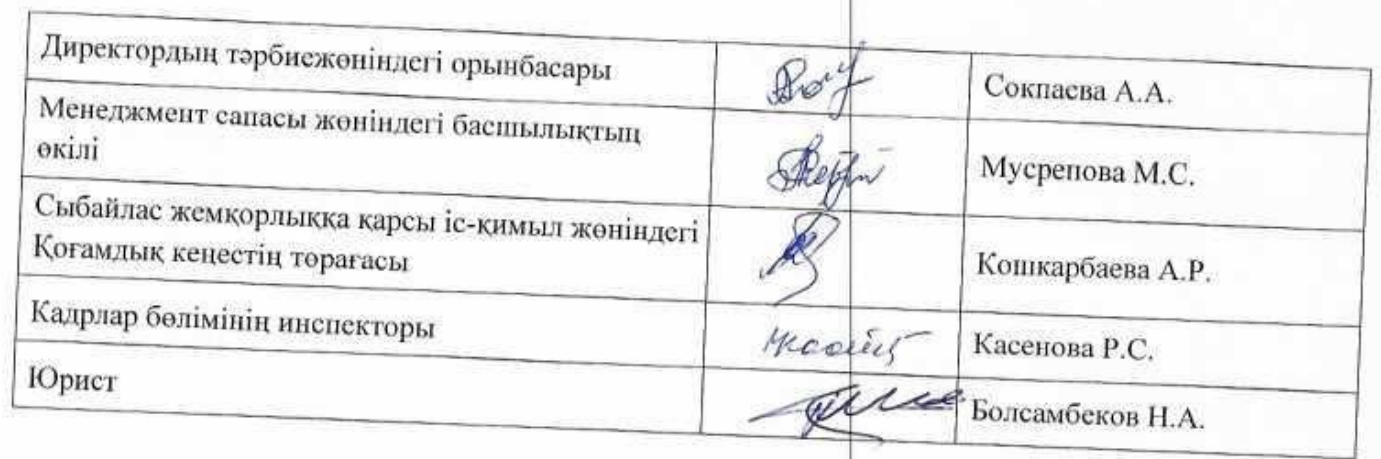 Директордың тәрбиежөніндегі орынбасары
Сокпаева А.А.
Менеджмент сапасы жөніндегі басшылықтың
өкілі
Мусрепова М.С.
Сыбайлас жемқорлыққа қарсы іс-қимыл жөніндегі
Қоғамдық кеңестің төрағасы
Кошкарбаева А.Р.
Кадрлар бөлімінің инспекторы
Касенова Р.С.
Юрист
Болсамбеков Н.А.